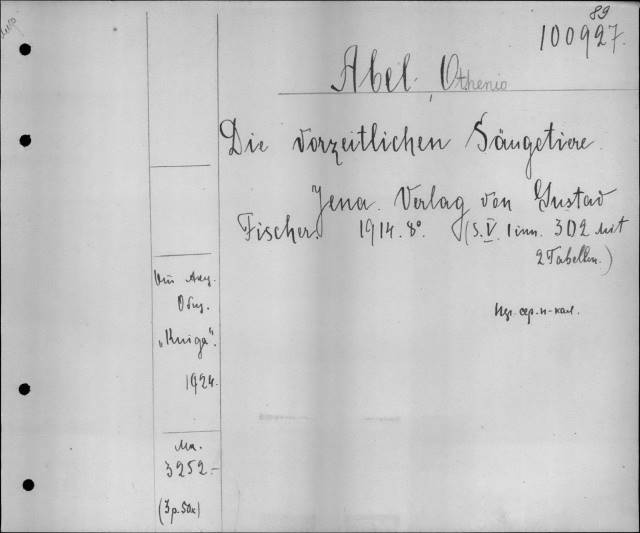 89
100927.
Abel, Othenio
Die vorzeitlichen Säugetiere.
Jena. Verlag von Gustav
Fischer. 1914. 8°. (S. V. 1 inn. 302 mit
2 Tabellen.)
Изд. сер. и-кал.
Отъ Акц.
Общ.
„Книга“.
1924.
Ма.
3252.-
(3 р. 50к)